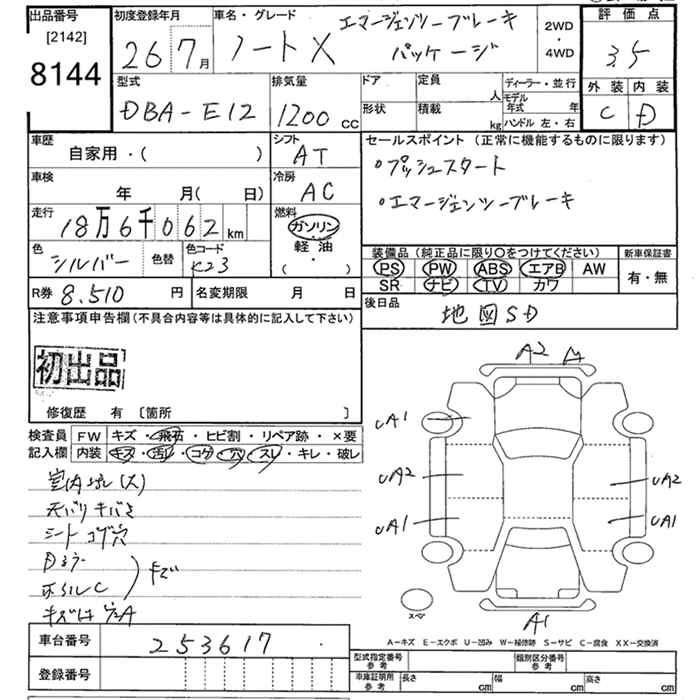 出品番号 初度登録年月 車名・グレード エマージェンシーブレーキ 2WD 評価点
[2142] 26 7月 ノートX パッケージ ・ 35
8144 4WD
外装 内装
C D
型式 排気量 ドア 定員 人 ディーラー・並行
DBA-E12 1200 cc 形状 積載 kg モデル年式 年
ハンドル 左・右
車歴 シフト セールスポイント (正常に機能するものに限ります)
自家用・( ) AT ・プッシュスタート
車検 冷房 ・エマージェンシーブレーキ
年 月( 日) AC
走行 燃料
18万6千062km ガソリン
軽油
( ・ )
色 シルバー 色替 色コード K23
装備品 (純正品に限り○をつけてください) 新車保証書
PS PW ABS エアB AW 有・無
SR ナビ TV カワ
R券 8.510 円 名変期限 月 日
後日品 地図SD
注意事項申告欄(不具合内容等は具体的に記入して下さい)
初出品
修復歴 有 〔箇所 〕
検査員 FW キズ・飛石・ヒビ割・リペア跡・×要
記入欄 内装 キズ・汚れ・コゲ・穴・スレ・キレ・破レ
室内汚レ(大)
天バリキバミ
シートコゲ穴
キズ
A2 A
UA1
UA2 UA2
UA1 UA1
A1
スペア
車台番号 253617
登録番号
A-キズ E-エクボ U-凹み W-補修跡 S-サビ C-腐食 XX-交換済
型式指定番号 参考 類別区分番号 参考
車庫証明用 参考 長さ cm 幅 cm 高さ cm